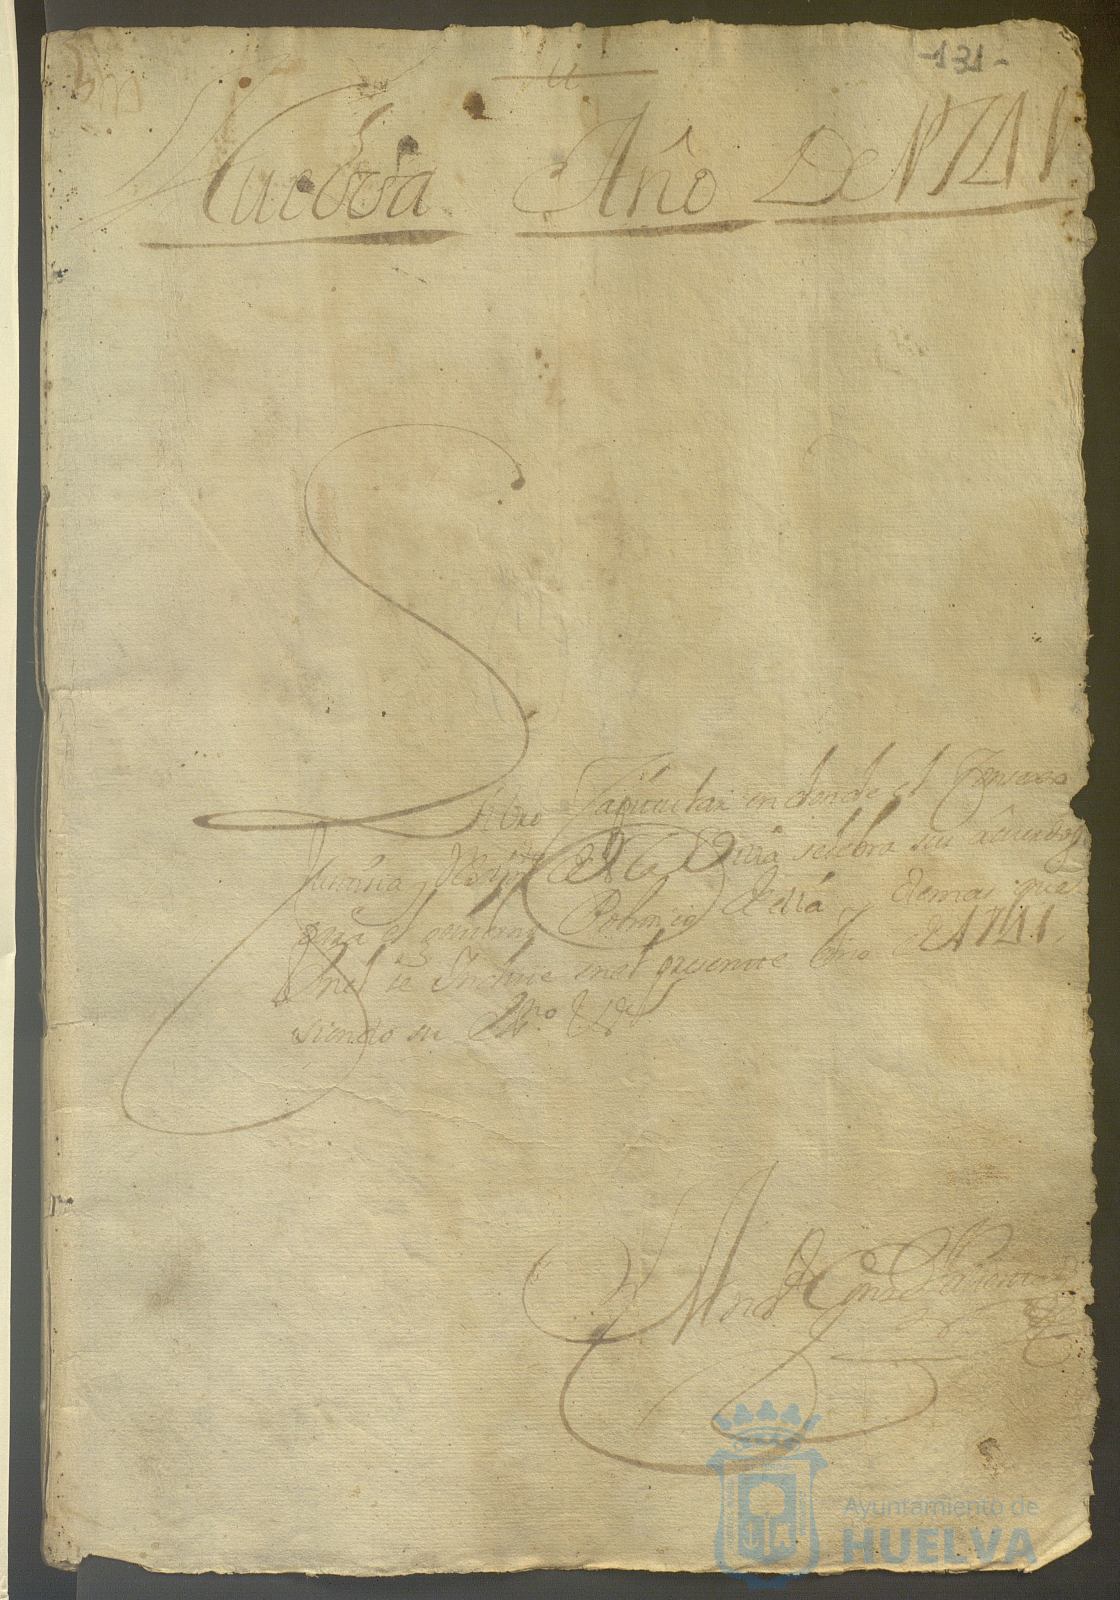 -131-
Huelva Año De 1741
Libro Capitular en donde el Conzexo
Justicia y Reximto de la Villa selebra sus acuerdos
para el govierno Politico de ella y demas que
en el se Incluie en el presente Año de 1741
siendo su
Ayuntamiento de
HUELVA